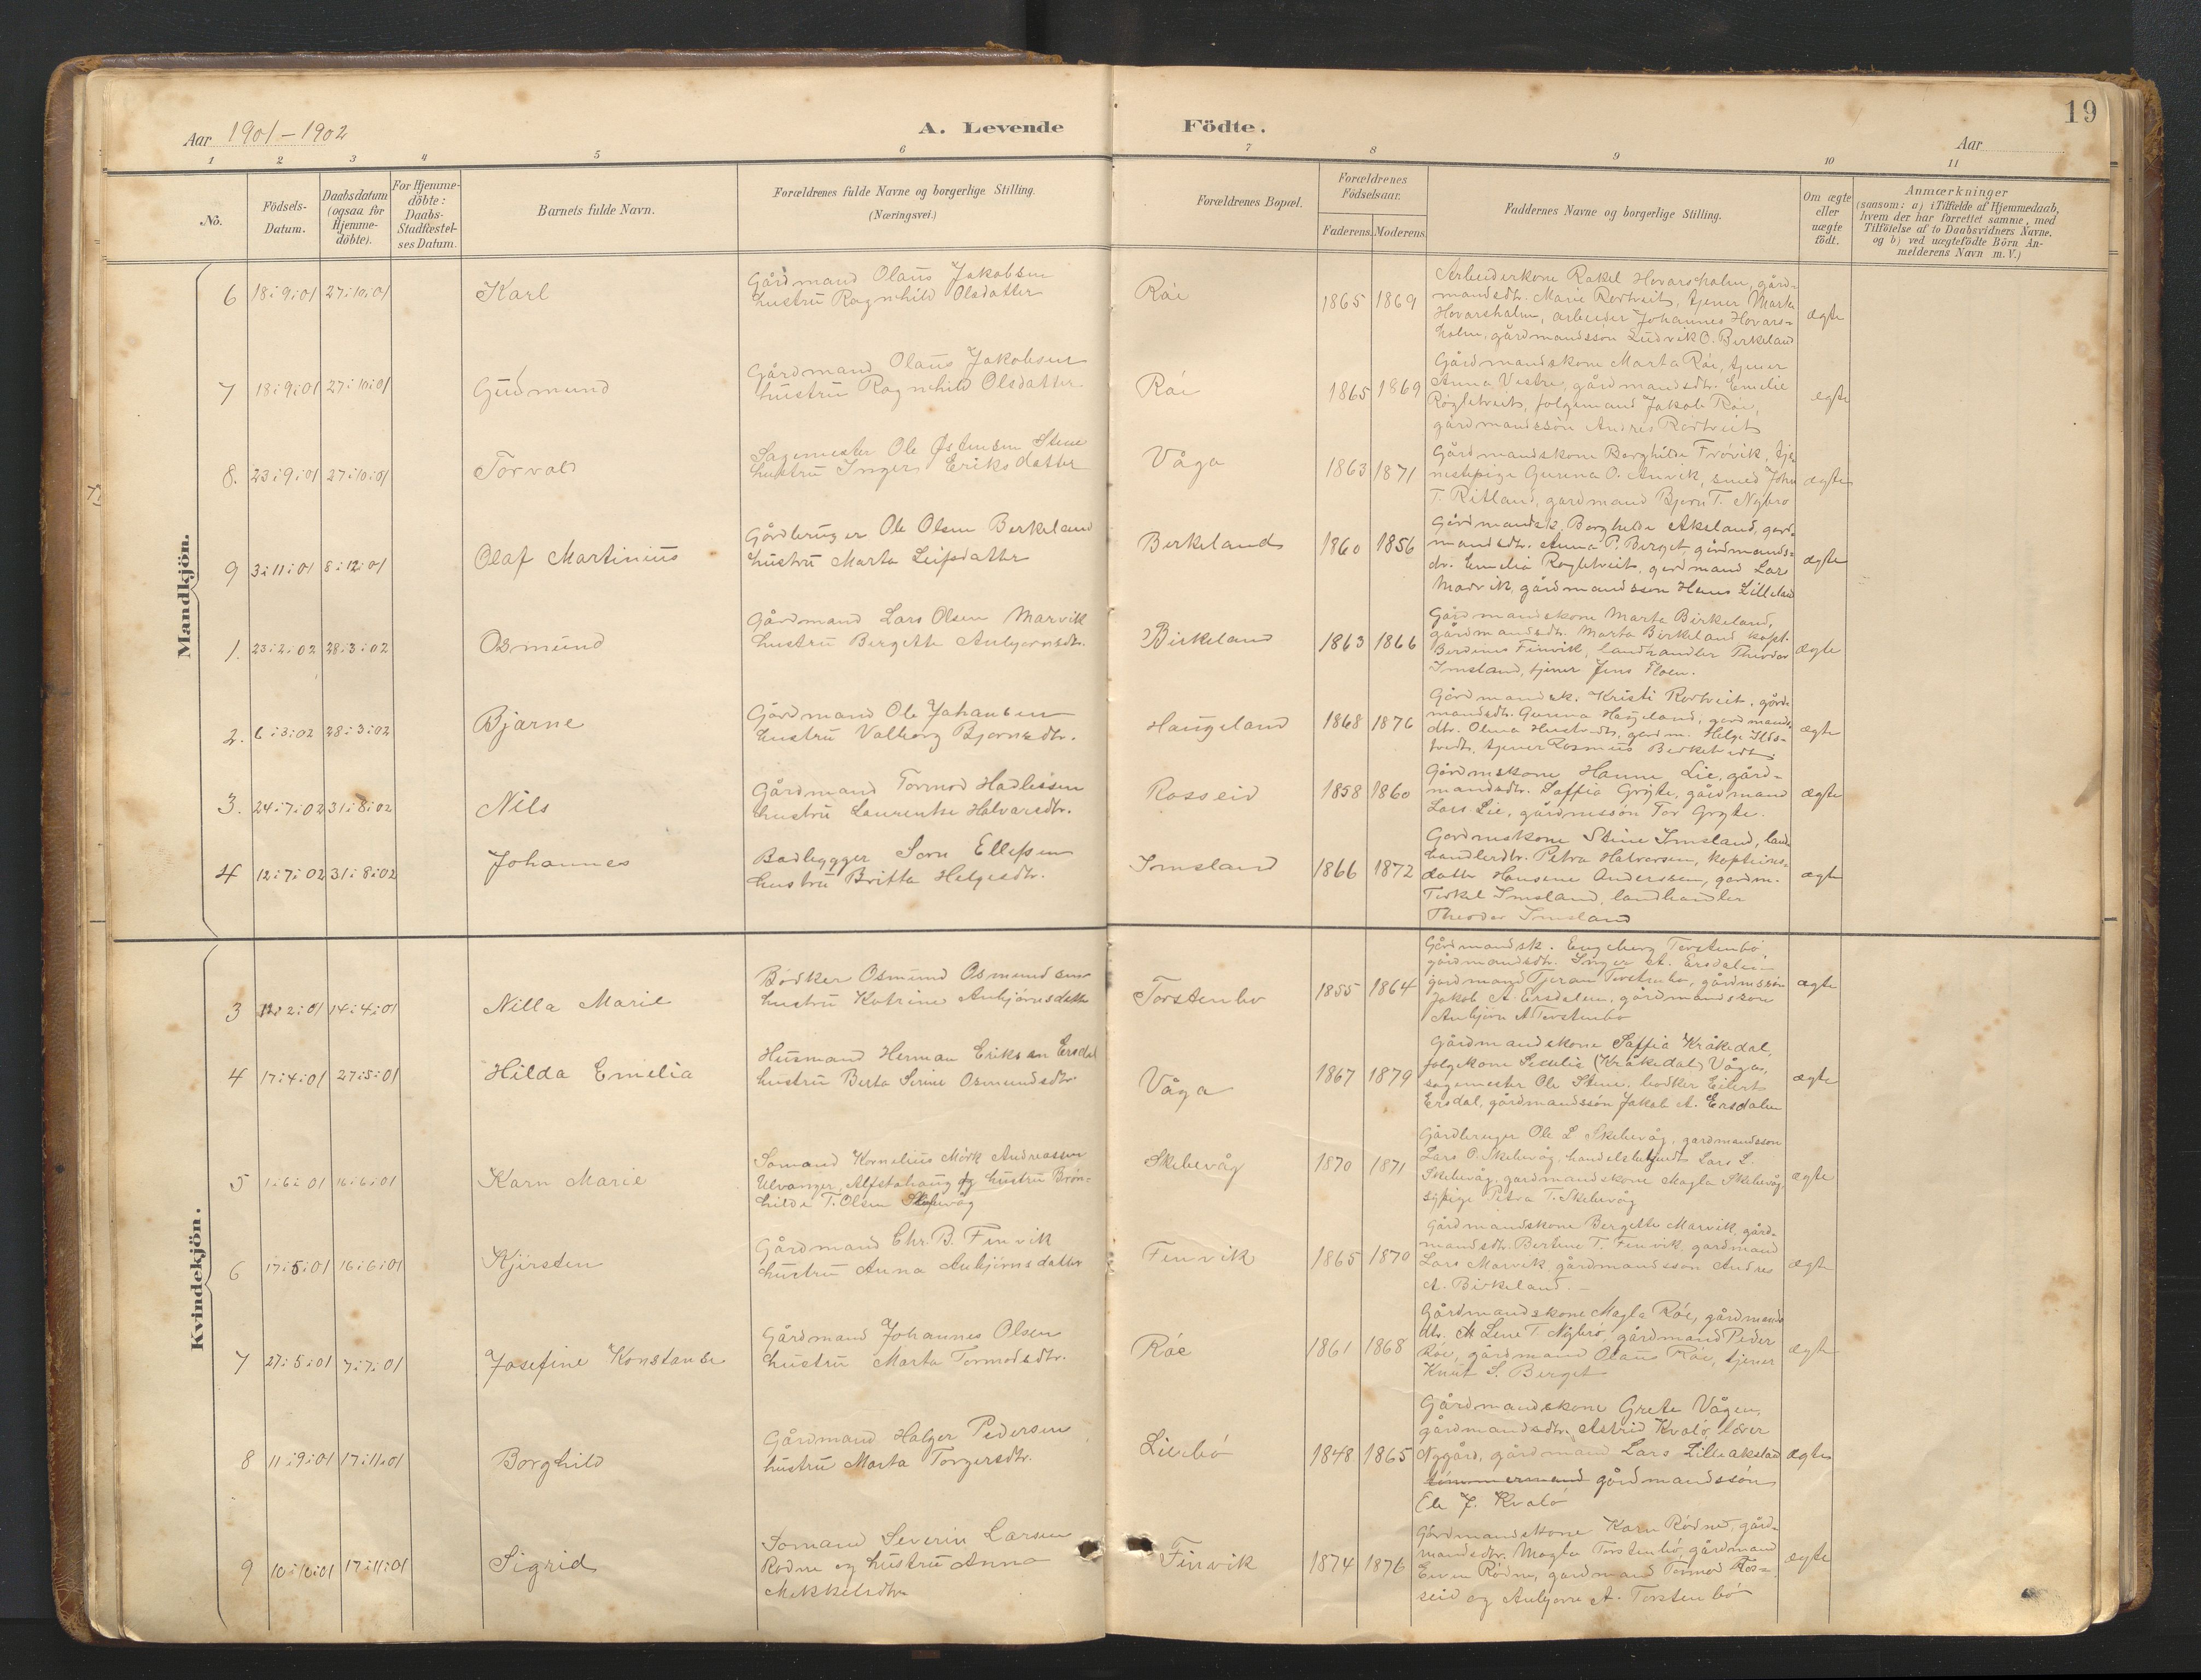 19
Aar 1901-1902
A. Levende Födte.
Aar
1 2 3 4 5 6 7 8 9 10 11
No.
Födsels-Datum.
Daabsdatum (ogsaa for Hjemme-döbte).
For Hjemme-döbte: Daabs-Stadfæstel-ses Datum.
Barnets fulde Navn.
Forældrenes fulde Navne og borgerlige Stilling.
(Næringsvei.)
Forældrenes Bopæl.
Forældrenes Födselsaar.
Faderens. Moderens.
Faddernes Navne og borgerlige Stilling.
Om ægte eller uægte födt.
Anmærkninger
(saasom: a) i Tilfælde af Hjemmedaab,
hvem der har forrettet samme, med
Tilföielse af to Daabsvidners Navne.
og b) ved uægtefödte Börn An-
melderens Navn m.V.)
Mandkjön.
6 18:9:01 27:10:01 Karl
Gårdmand Olaus Jakobsen
hustru Ragnhild Olsdatter
Röe 1865 1869
Arbeiderkone Rakel Hovarsholm, gård-
mandsdtr. Marie Rødtveit, tjener Marta
Hovarsholm, arbeider Johannes Hovars-
holm, gårdmandssön Ludvik O. Birkeland
ægte
7 18:9:01 27:10:01 Gudmund
Gårdmand Olaus Jakobsen
hustru Ragnhild Olsdatter
Röe 1865 1869
Gårdmandskone Marta Röe, tjener
Anna Vestre, gårdmandsdtr. Emelie
folgemand Jakob Röe,
gårdmandssön Andres Rødtveit
ægte
8. 23:9:01 27:10:01 Torvald
Sagemester Ole Østensen Stene
hustru Inger Eriksdatter
Våga 1863 1871
Gårdmandskone Borghilde Frövik, tje-
nestepige Gurina O. Anvik, smed John
T. Ritland, gardmand Bjørn T. Nybrö
ægte
9 3:11:01 8:12:01 Olaf Martinius
Gårdbruger Ole Olsen Berkeland
hustru Marta Leifsdatter
Berkeland 1860 1856
Gårdmandsk. Borghilde Akeland, gård-
mandsdtr. Anna P. Berget, gårdmands-
dr. Emelia gårdmand Lars
Marvik, gårdmandsson Hans Lilleland
ægte
1. 23:2:02 28:3:02 Osmund
Gårdmand Lars Olsen Marvik
hustru Bergette Anbjørnsdtr.
Birkeland 1863 1866
Gårdmandskone Marta Birkeland,
gårdmandsdtr. Marta Birkeland, kapt.
Berdines Finvik, landhandler Theodor
Imsland, tjener Jens
ægte
2. 6:3:02 28:3:02 Bjarne
Gårdmand Ole Johansen
hustru Valborg Bjørnsdtr.
Haugeland 1868 1876
Gårdmandsk. Kristi Rødtveit, gård-
mandsdtr. Gurina Haugeland, gårdmands
dtr. Olena gårdm. Helge
tjener Rasmus
ægte
3. 24:7:02 31:8:02 Nils
Gårdmand Tormod Hadlesen
hustru Laurentse Halvarsdtr.
Rosseid 1858 1860
Gårdmskone Hanne Lie, gård-
mandsdtr. Saffia Gryte, gårdmand
Lars Lie, gårdmssön Tor Gryte.
ægte
4 12:7:02 31:8:02 Johannes
Badleggger Sorn Ellefsen
hustru Britta Helgesdtr.
Imsland 1866 1872
Gardmskone Stine Imsland, land-
handlerdtr. Petra Halvorsen, kapteins-
datter Hansene Anderssen, gardm.
Terkel Imsland, landhandler
Theodor Imsland
ægte
Kvindekjön.
3 12:2:01 14:4:01 Nilla Marie
Bödker Osmund Osmundsen
hustru Katrine Anbjörnsdatter
Torstenbo 1855 1864
Gårdmandsk. Engeborg Torstenbö
gårdmandsdtr. Inger A. Ersdalen
gårdmand Tjeran Torstenbö, gårdmssön
Jakob A. Ersdalen, gårdmandsson
Anbjørn A Torstenbö
ægte
4 17:4:01 27:5:01 Hilda Emelia
Husmand Herman Eriksen Ersdal
hustru Berta Serine Osmundsdtr.
Våga 1867 1879
Gårdmandskone Saffia Kråkedal,
folgekone Sesselia (Kråkedal) Våga,
sagemester Ole Stene, bodker Eilert
Ersdal, gårdmandssön Jakob A. Ersdalen
ægte
5 1:6:01 16:6:01 Karn Marie
Somand Kornelius Mörk Andreassen
Ulvanger, Alfstahaug og hustru Brön-
hilde T. Olsen Skebevåg
Skebevåg 1870 1871
Gårdbruger Ole L Skebevåg, gardmandsson
Lars O. Skebevåg, handelsbetjent Lars L.
Skebevåg, gardmandskone Magla Skebevåg,
sypige Petra T. Skebevåg
ægte
6 17:5:01 16:6:01 Kjirsten
Gårdmand Chr. B. Finvik
hustru Anna Anbjörnsdatter
Finvik 1865 1870
Gårdmandskone Bergette Marvik, gård-
mandsdtr. Bertine T. Finvik, gardmand
Lars Marvik gårdmandsson Andres
A. Birkeland. -
ægte
7 27:5:01 7:7:01 Josefine Konstanse
Gårdmand Johannes Olsen
hustru Marta Tormodsdtr.
Röe 1861 1868
Gårdmandskone Magla Röe, gårdmands
dtr. M Lene T. Nybrö, gårdmand Peder
Röe, gårdmand Olaus Röe, tjener
Knut S. Berget
ægte
8 11:9:01 17:11:01 Borghild
Gårdmand Holger Pedersen
hustru Marta Torgersdtr.
Liebö 1848 1865
Gårdmandskone Grete Vågen,
gårdmandsdtr. Astrid Kvalö, lærer
Nygård, gårdmand Lars Lilleakeland
tömmermand gårdmandssön
Ele J. Kvalö
ægte
9 10:10:01 17:11:01 Sigrid
Somand Severin Larsen
Rödne og hustru Anna
Mekkelsdtr.
Finvik 1874 1876
Gårdmandskone Karn Rödne, gård-
mandsdtr. Magla Torstenbö, gårdmand
Even Rödne, gardmand Tormod Ros-
seid og Anbjorn A. Torstenbö
ægte